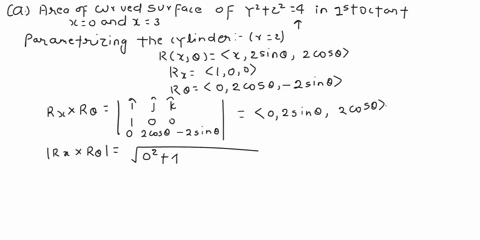 (a) Area of curved surface of y²+z²=4 in 1st octant
x=0 and x=3
Parametrizing the cylinder:- (r=2)
R(x,θ) = <x, 2sinθ, 2cosθ>
Rx = <1,0,0>
Rθ = <0, 2cosθ, -2sinθ>
Rx × Rθ = | î ĵ k̂ |
| 1 0 0 | = <0, 2sinθ, 2cosθ>
| 0 2cosθ -2sinθ |
|Rx × Rθ| = √0²+1